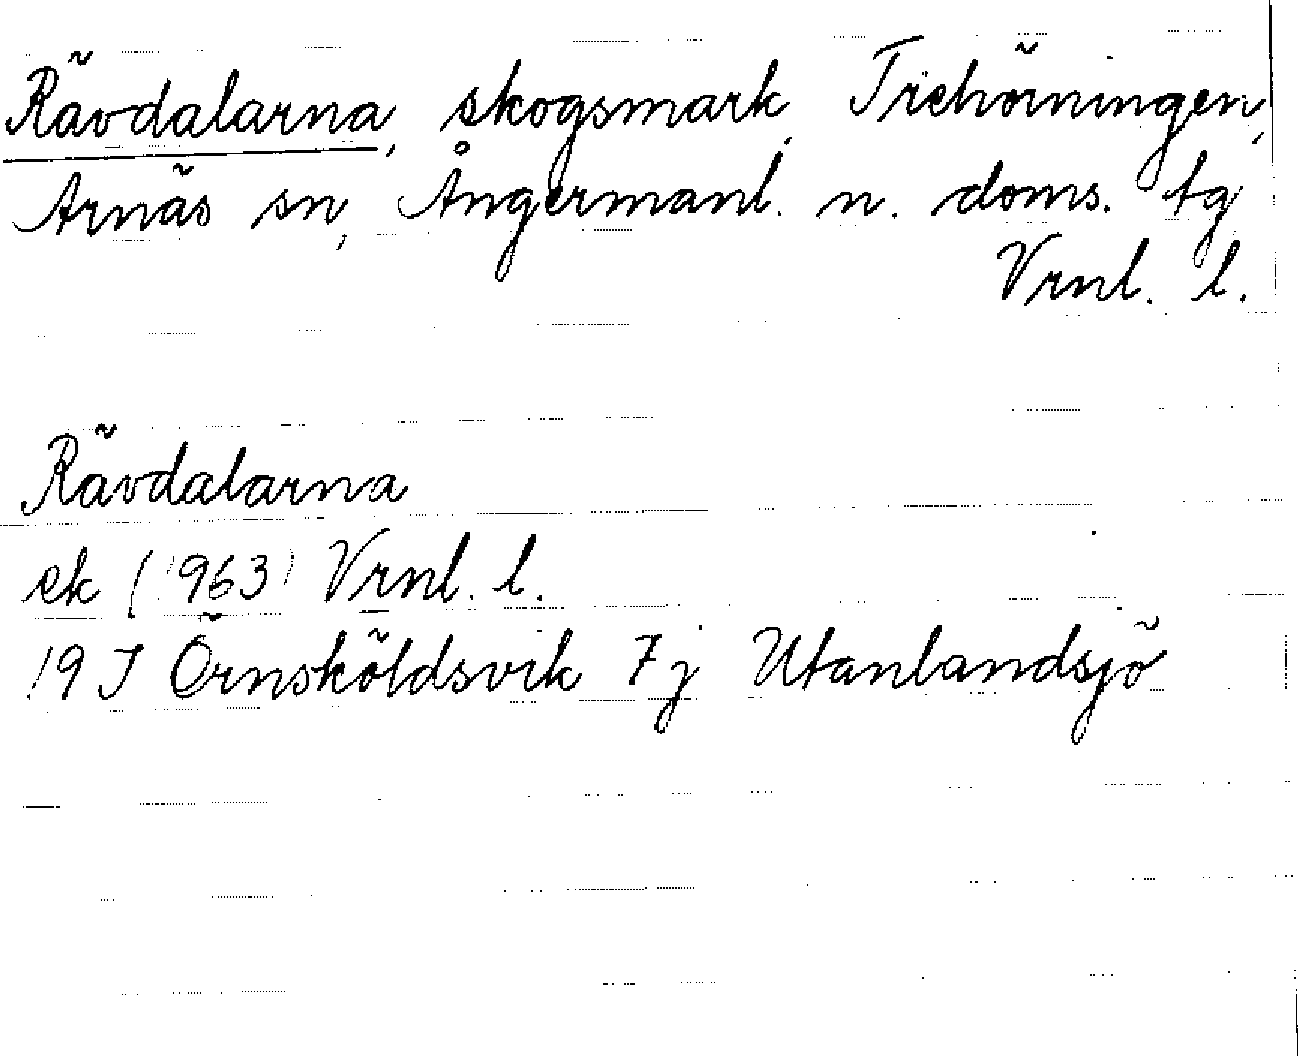 Rävdalarna, skogsmark, Trehörningen,
Arnäs sn, Ångermanl. n. doms. tg
Vrml. l.
Rävdalarna
ek (1963) Vrml. l.
19 J Örnsköldsvik 7j Utanlandsjö